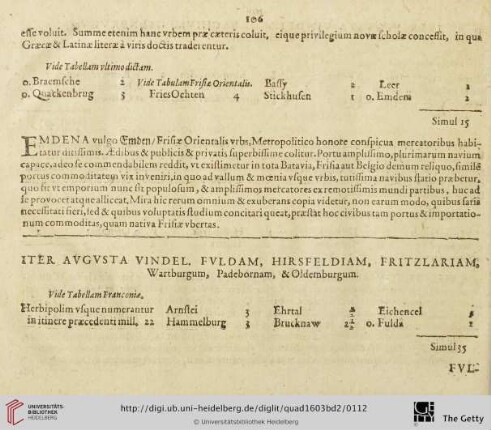 106
esse voluit. Summe etenim hanc vrbem præ cæteris coluit, eique privilegium novæ scholæ concessit, in qua
Græcæ & Latinæ literæ à viris doctis traderentur.
Vide Tabellam vltimo dictam.
o. Braemsche 2 Vide Tabulam Frisiæ Orientalis. Bassy 2 Leer 2
o. Quackenbrug 3 Fries Oehten 4 Stickhusen 1 o. Emdem 2
Simul 15
EMDENA vulgo Emden/ Frisiæ Orientalis vrbs, Metropolitico honore conspicua mercatoribus habi-
tatur ditissimis. Ædibus & publicis & privatis superbissime colitur. Portu amplissimo, plurimarum navium
capace, adeo se commendabilem reddit, vt existimetur in tota Batavia, Frisia aut Belgio demum reliquo, similē
portus commoditatem vix inveniri, in quo ad vallum & mœnia vsque vrbis, tutissima navibus statio præbetur,
quo fit vt emporium nunc sit populosum, & amplissimos mercatores ex remotissimis mundi partibus, huc ad
se provocet atque alliceat. Mira hic rerum omnium & exuberans copia videtur, non earum modo, quibus satis
necessitati fieri, sed & quibus voluptatis studium concitari queat, præstāt hoc civibus tam portus & importatio-
num commoditas, quam nativa Frisiæ vbertas.
ITER AVGVSTA VINDEL. FVLDAM, HIRSFELDIAM, FRITZLARIAM,
Wartburgum, Padebornam, & Oldemburgum.
Vide Tabellam Franconiæ.
Herbipolim vsque numerantur Arnstei 3 Ehrtal Eichencel
in itinere præcedenti mill. 22 Hammelburg 3 Brucknaw 2½ o. Fulda 2
Simul 35
FVL-
UNIVERSITÄTS-
BIBLIOTHEK
HEIDELBERG
http://digi.ub.uni-heidelberg.de/diglit/quad1603bd2/0112
© Universitätsbibliothek Heidelberg
The Getty